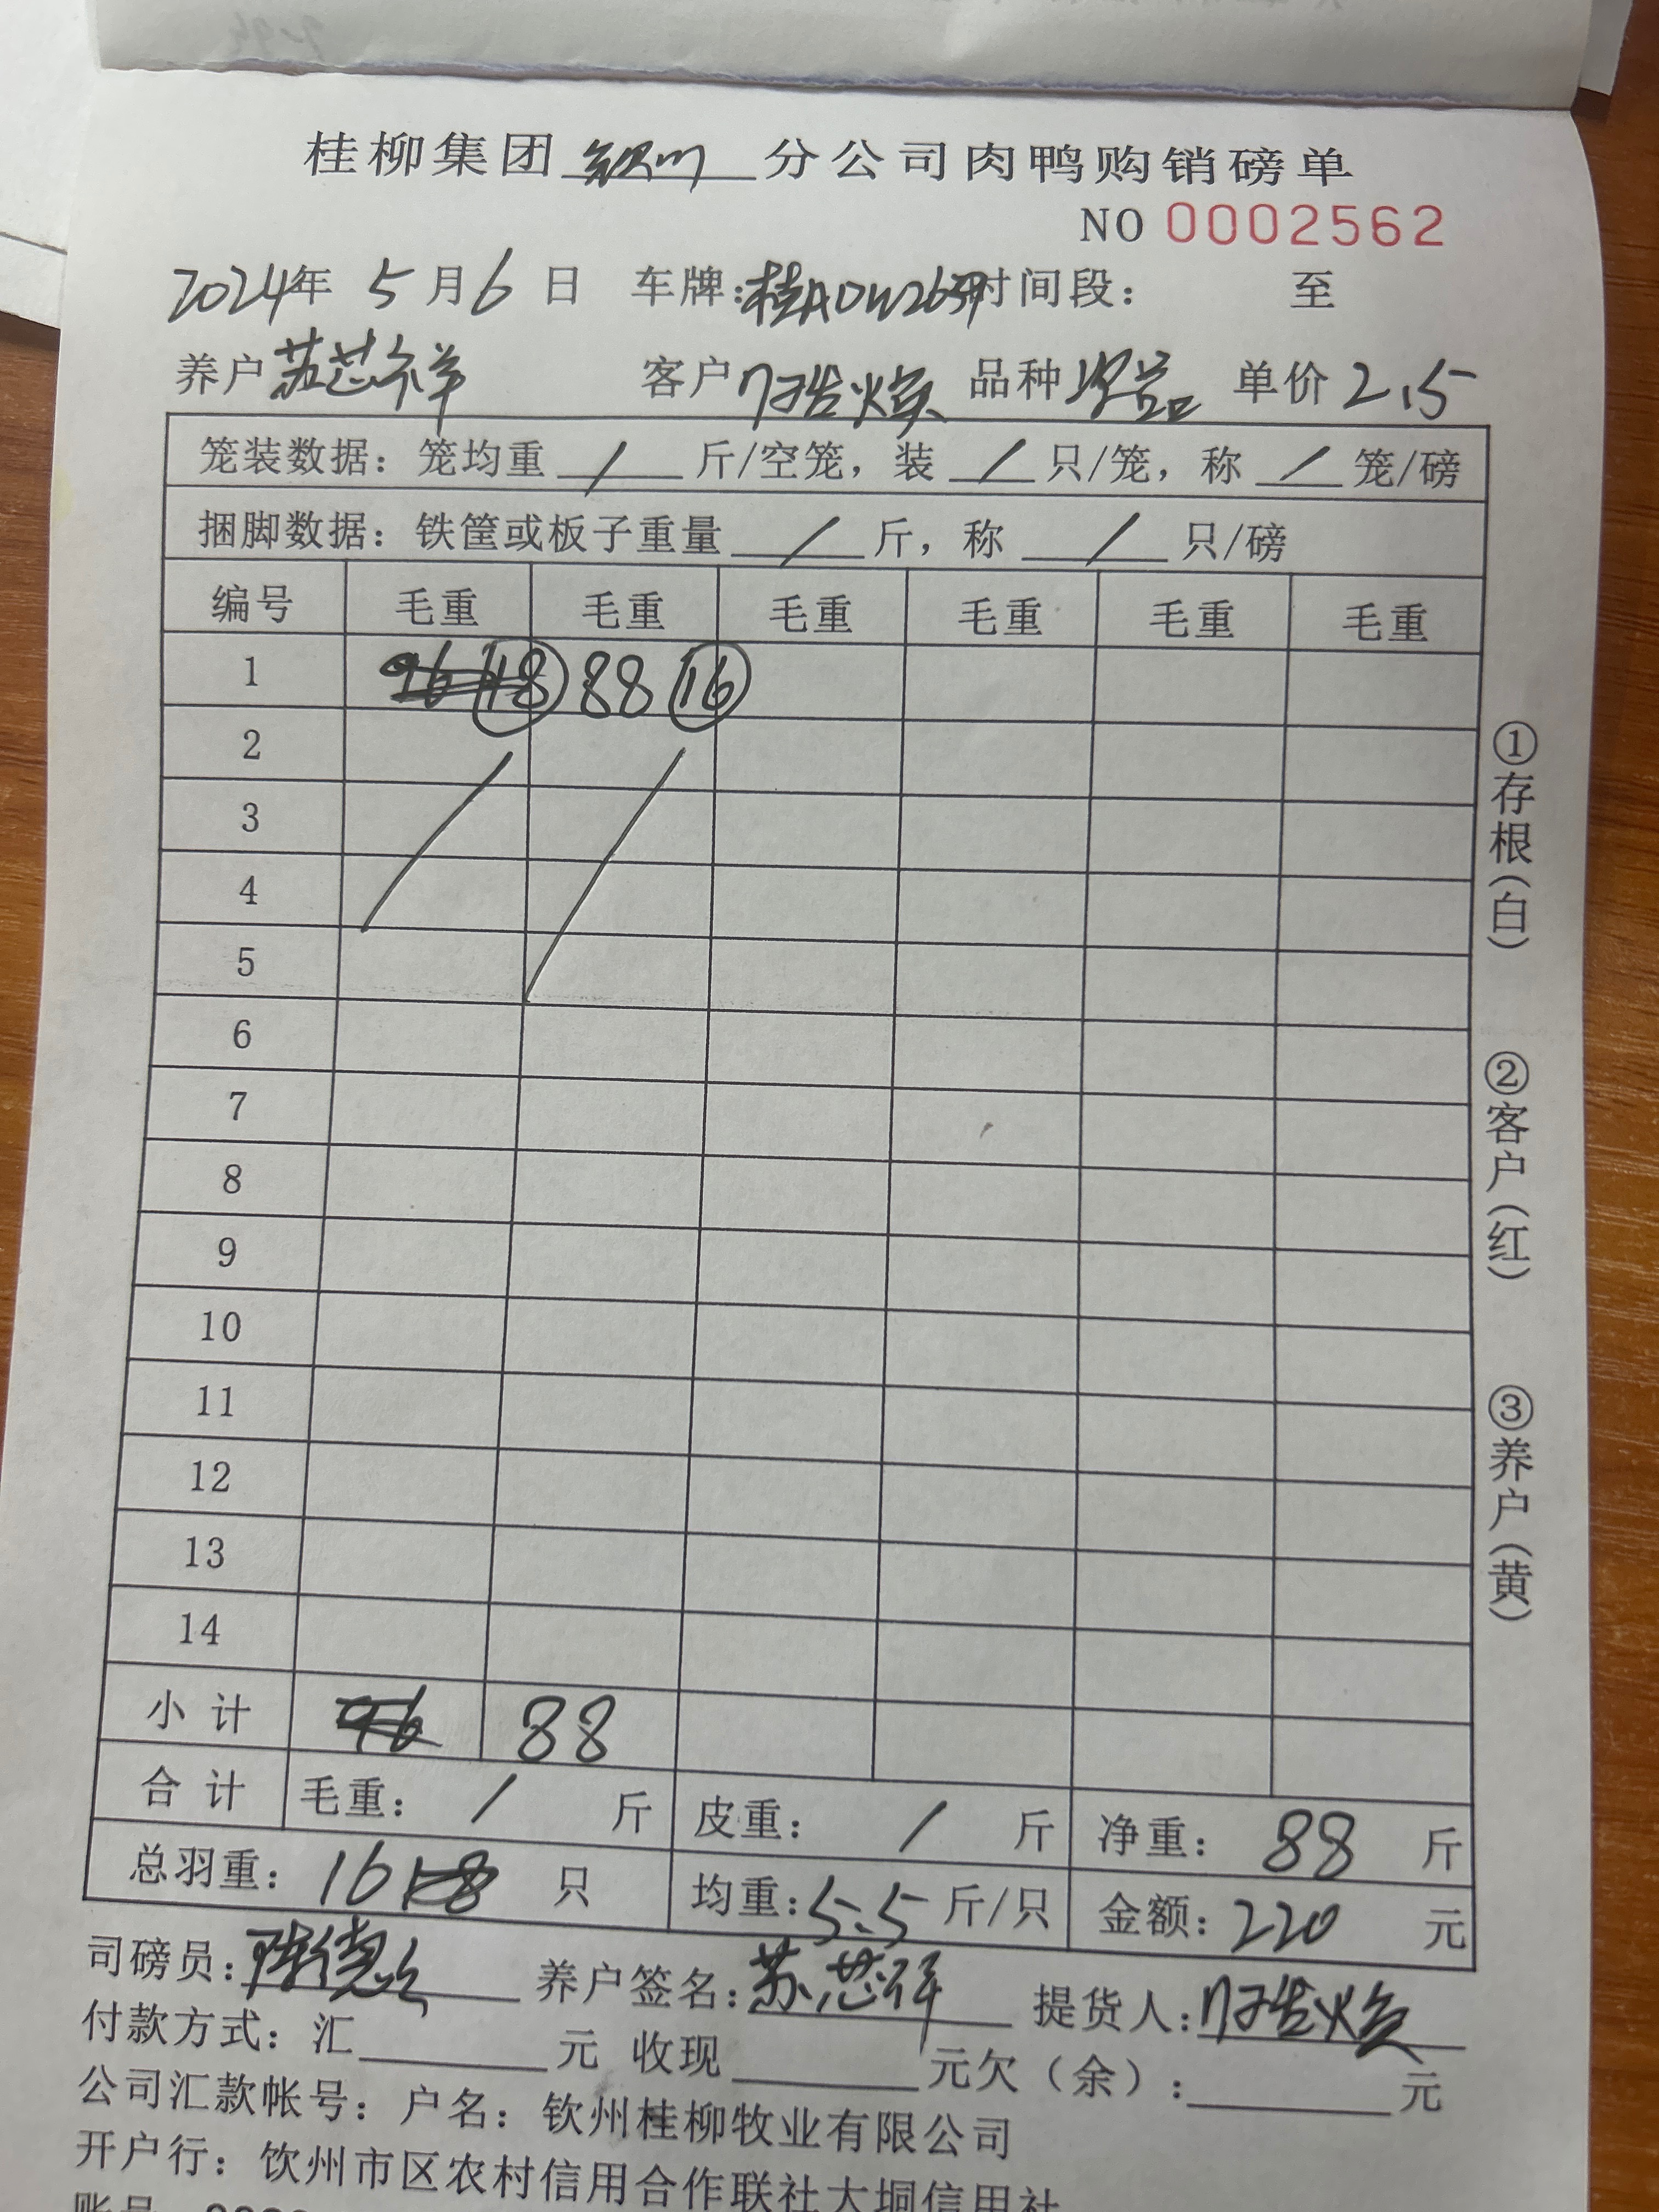 桂柳集团钦州分公司肉鸭购销磅单
NO 0002562
2024年 5月6日 车牌:桂A0W263 时间段: 至
养户 苏芯祥 客户 焕 品种 次品 单价 2.5
笼装数据: 笼均重 / 斤/空笼, 装 / 只/笼, 称 / 笼/磅
捆脚数据: 铁筐或板子重量 / 斤, 称 / 只/磅
编号 毛重 毛重 毛重 毛重 毛重 毛重
1 96 18 88 16
2
3
4
5
6
7
8
9
10
11
12
13
14
小计 96 88
合计 毛重: / 斤 皮重: / 斤 净重: 88 斤
总羽重: 16 18 只 均重: 5.5 斤/只 金额: 220 元
司磅员: 陈德 养户签名: 苏芯祥 提货人: 焕
付款方式: 汇 元 收现 元欠(余): 元
公司汇款帐号: 户名: 钦州桂柳牧业有限公司
开户行: 钦州市区农村信用合作联社大垌信用社
账号
①存根(白)
②客户(红)
③养户(黄)